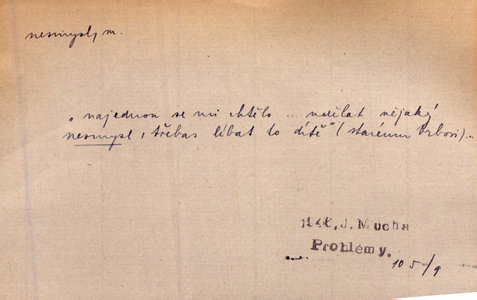 nesmysl, m.
„najednou se mi chtělo ... udělat nějaký
nesmysl, třebas líbat to dítě" (starému Vrbovi).–
H46, J. Mucha
Problémy.
105/9